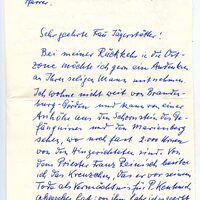 Pfarrer.
Sehr geehrte Frau Jägerstätter!
Bei meiner Rückkehr in die Ost-
zone möchte ich gern ein Andenken
an Ihren seligen Mann mitnehmen.
Ich wohne nicht weit von Branden-
burg-Görden und kann von einer
Anhöhe aus den Schornstein des Ge-
fängnisses und den Marienberg
sehen, wo noch fast 2000 Urnen
von den Hingerichteten sind. Von
dem Priester Franz Reinisch besitze
ich das Kreuzchen, das er vor seinem
Tode als Vermächtnis für P. Kentenich